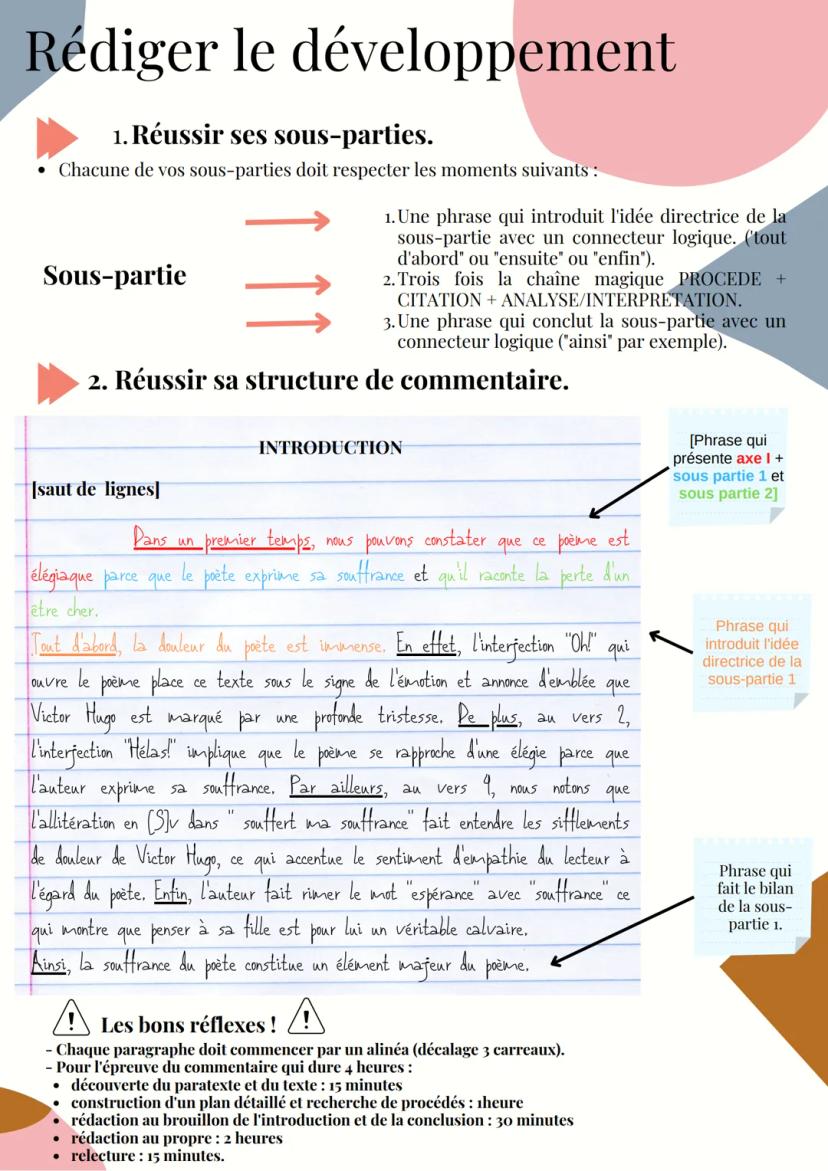 Rédiger le développement
1. Réussir ses sous-parties.
• Chacune de vos sous-parties doit respecter les moments suivants :
Sous-partie
1. Une phrase qui introduit l'idée directrice de la
sous-partie avec un connecteur logique. ('tout
d'abord" ou "ensuite" ou "enfin").
2. Trois fois la chaîne magique PROCEDE +
CITATION + ANALYSE/INTERPRETATION.
3. Une phrase qui conclut la sous-partie avec un
connecteur logique ("ainsi" par exemple).
2. Réussir sa structure de commentaire.
INTRODUCTION
[saut de lignes]
[Phrase qui
présente axe I +
sous partie 1 et
sous partie 2]
Dans un premier temps, nous pouvons constater que ce poème est
élégiaque parce que le poète exprime sa souffrance et qu'il raconte la perte d'un
être cher.
Tout d'abord, la douleur du poète est immense. En effet, l'interjection "Oh!" qui
ouvre le poème place ce texte sous le signe de l'émotion et annonce d'emblée que
Victor Hugo est marqué par une profonde tristesse. De plus, au vers 2,
l'interjection "Hélas!" implique que le poème se rapproche d'une élégie parce que
l'auteur exprime sa souffrance. Par ailleurs, au vers 4, nous notons que
l'allitération en [S]v dans " souffert ma souffrance" fait entendre les sifflements
de douleur de Victor Hugo, ce qui accentue le sentiment d'empathie du lecteur à
l'égard du poète. Enfin, l'auteur fait rimer le mot "espérance" avec "souffrance" ce
qui montre que penser à sa fille est pour lui un véritable calvaire.
Ainsi, la souffrance du poète constitue un élément majeur du poème.
Phrase qui
introduit l'idée
directrice de la
sous-partie 1
Phrase qui
fait le bilan
de la sous-
partie 1.
! Les bons réflexes ! !
- Chaque paragraphe doit commencer par un alinéa (décalage 3 carreaux).
- Pour l'épreuve du commentaire qui dure 4 heures :
• découverte du paratexte et du texte : 15 minutes
• construction d'un plan détaillé et recherche de procédés : 1heure
• rédaction au brouillon de l'introduction et de la conclusion : 30 minutes
• rédaction au propre : 2 heures
• relecture : 15 minutes.